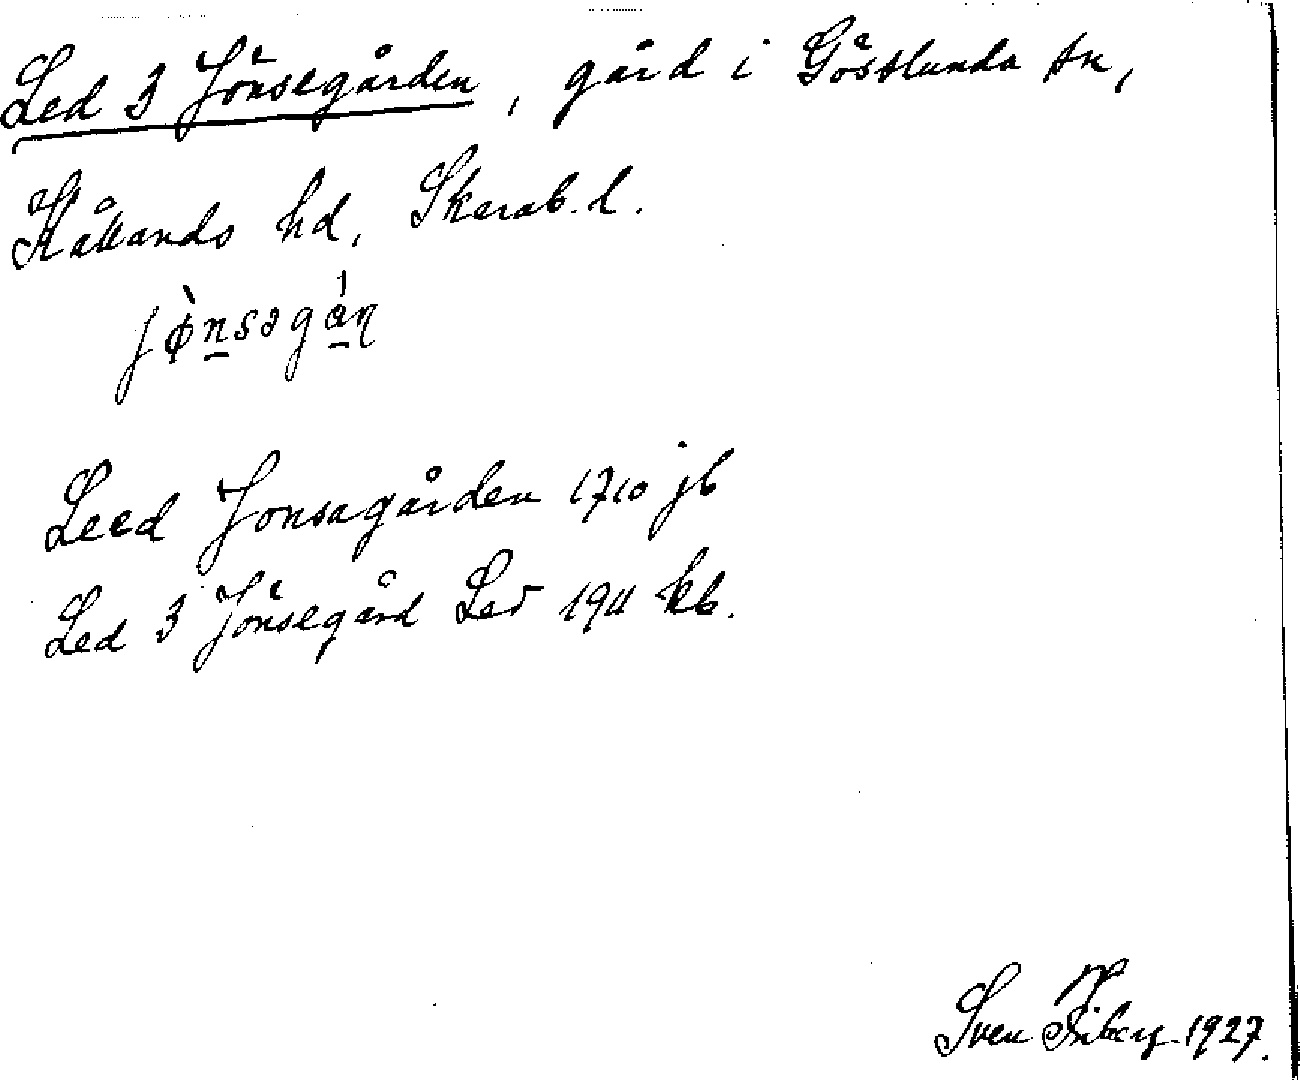 Led 3 Jönsegården, gård i Gösslunda sn,
Kållands hd, Skarab. l.
jø̀nsəgán
Leed Jonsagården 1710 jb
Led 3 Jönsegård Led 1911 kb.
Sven Friberg 1927.